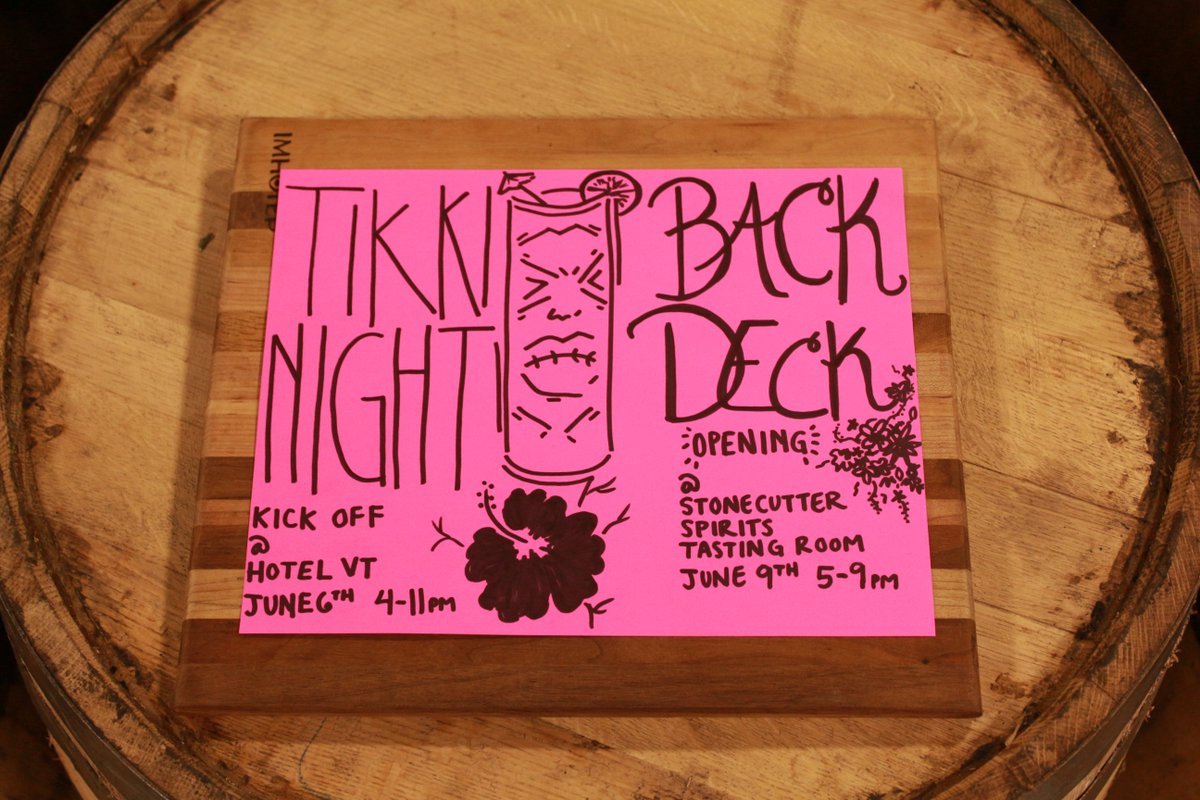 TIKKI
NIGHT
KICK OFF
@
HOTEL VT
JUNE 6TH 4-11PM
BACK
DECK
OPENING
@
STONECUTTER
SPIRITS
TASTING ROOM
JUNE 9TH 5-9PM